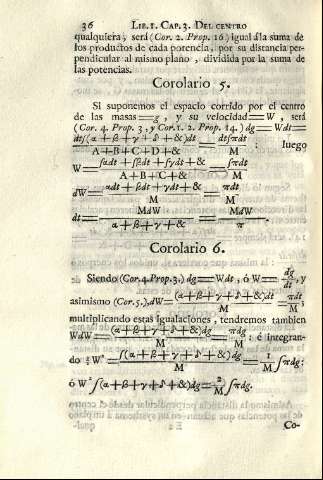 36 LIB. 1. CAP. 3. DEL CENTRO
qualquiera; será (Cor. 2. Prop. 16) igual á la suma de
los productos de cada potencia, por su distancia per-
pendicular al mismo plano, dividida por la suma de
las potencias.
Corolario 5.
Si suponemos el espacio corrido por el centro
de las masas=g, y su velocidad=W, será
(Cor. 4. Prop. 3, y Cor. 1. 2. Prop. 14.) dg=Wdt=
dt∫(α+β+γ+δ+&)dt / A+B+C+D+& = dt∫πdt / M : luego
W= ∫αdt+∫βdt+∫γdt+& / A+B+C+& = ∫πdt / M
dW= αdt+βdt+γdt+& / M = πdt / M
dt= MdW / α+β+γ+δ+& = MdW / π.
Corolario 6.
Siendo (Cor. 4. Prop. 3.) dg=Wdt, ó W= dg / dt, y
asimismo (Cor. 5.), dW= (α+β+γ+δ+&)dt / M = πdt / M;
multiplicando estas igualaciones, tendremos tambien
WdW= (α+β+γ+δ+&)dg / M = πdg / M : é integran-
do ½W²= ∫(α+β+γ+δ+&)dg / M = 1 / M ∫πdg:
ó W²∫(α+β+γ+δ+&)dg= 2 / M ∫πdg.
Co-